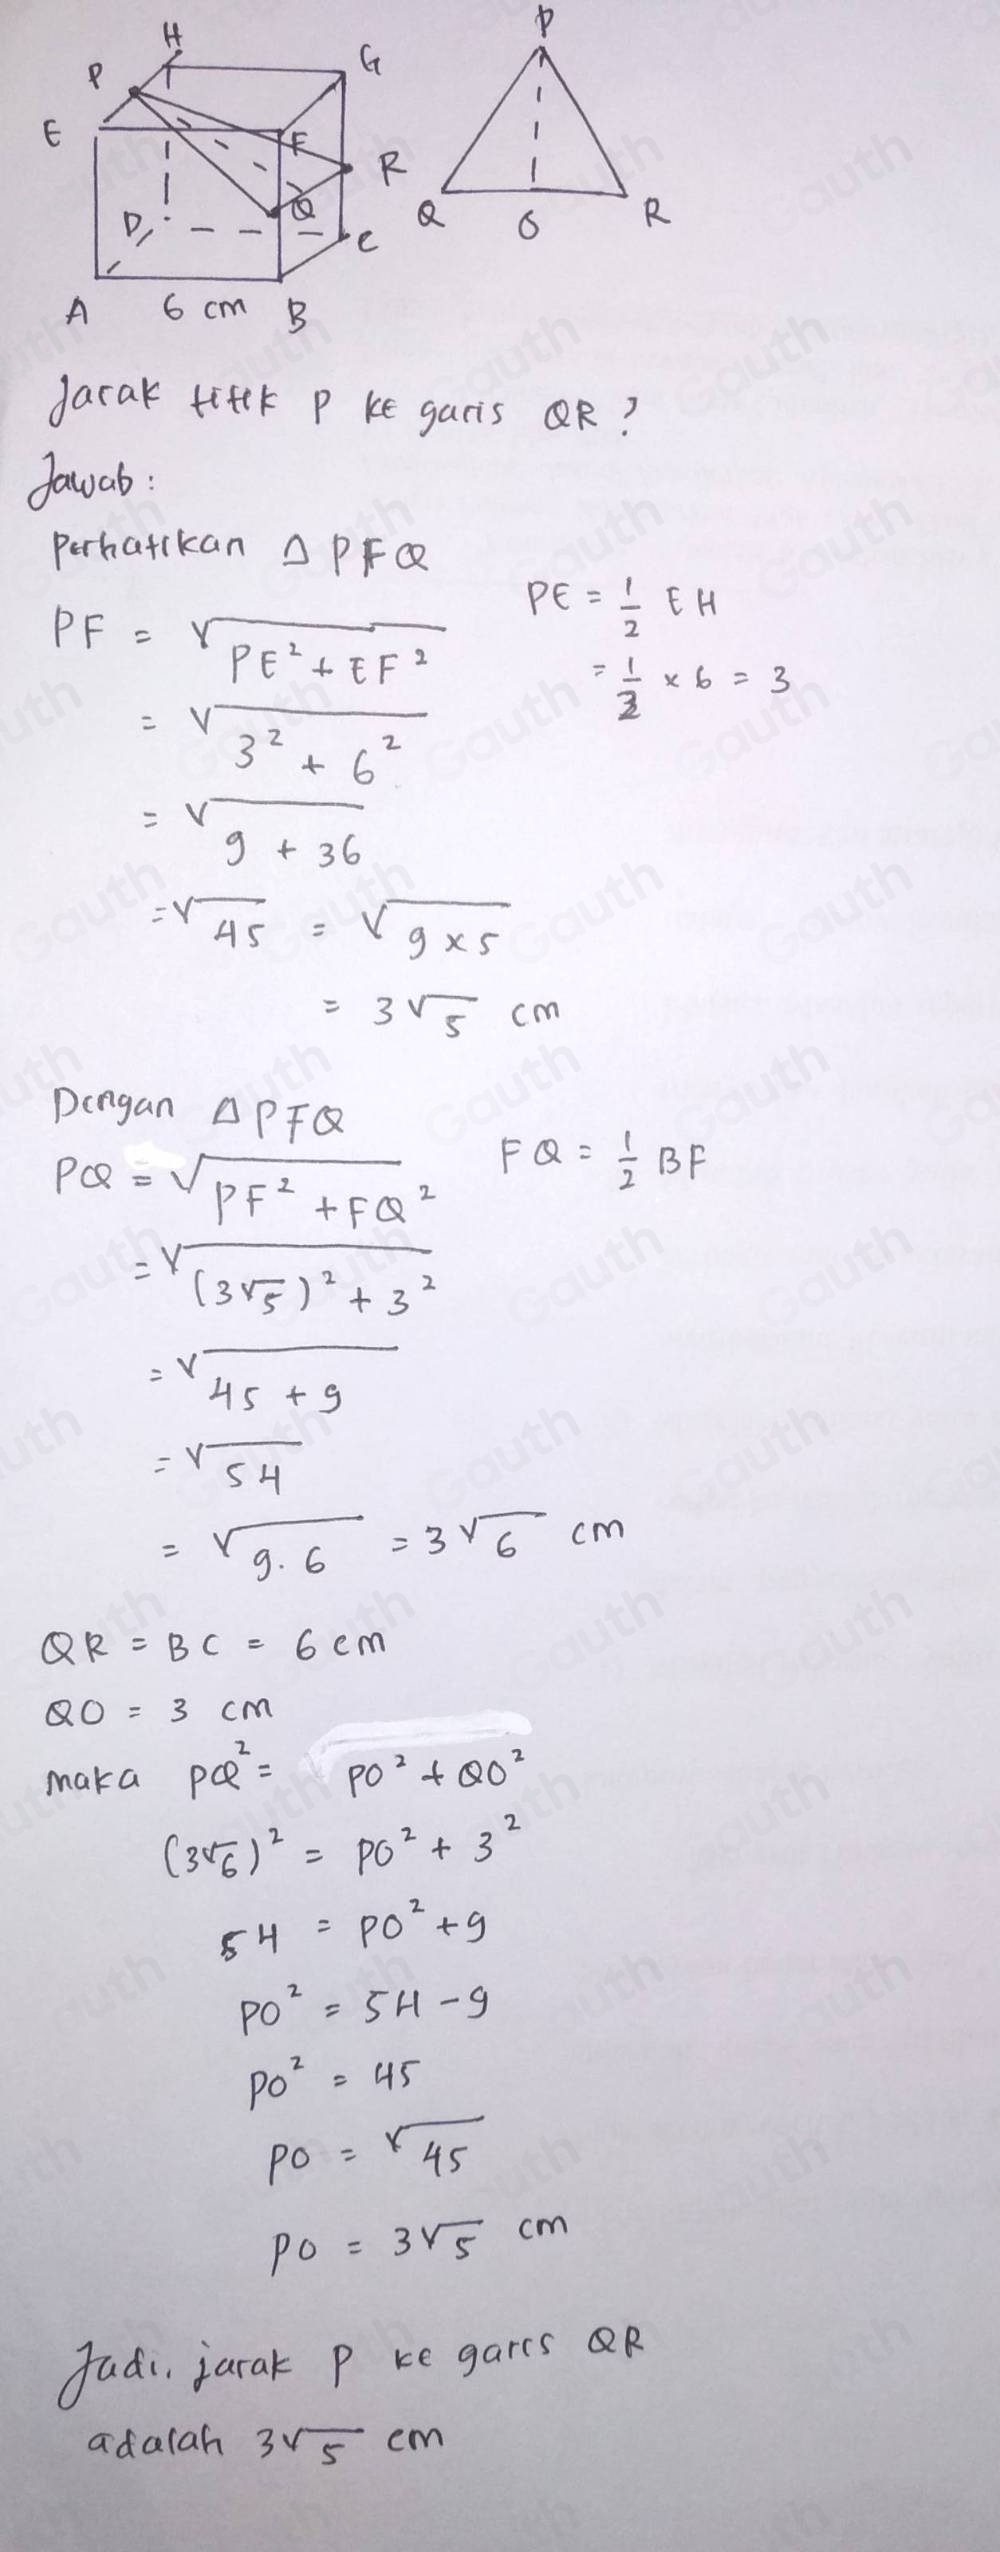 H
P
G
E
F
R
Q
D
C
A 6 cm B
P
Q O R
Jarak titik P ke garis QR?
Jawab:
Perhatikan △PFQ
PE = 1/2 EH
= 1/2 × 6 = 3
PF = √(PE² + EF²)
= √(3² + 6²)
= √(9 + 36)
= √45 = √(9 × 5)
= 3√5 cm
Dengan △PFQ
FQ = 1/2 BF
PQ = √(PF² + FQ²)
= √((3√5)² + 3²)
= √(45 + 9)
= √54
= √(9 . 6) = 3√6 cm
QR = BC = 6 cm
QO = 3 cm
maka PQ² = PO² + QO²
(3√6)² = PO² + 3²
54 = PO² + 9
PO² = 54 - 9
PO² = 45
PO = √45
PO = 3√5 cm
Jadi, jarak P ke garis QR
adalah 3√5 cm